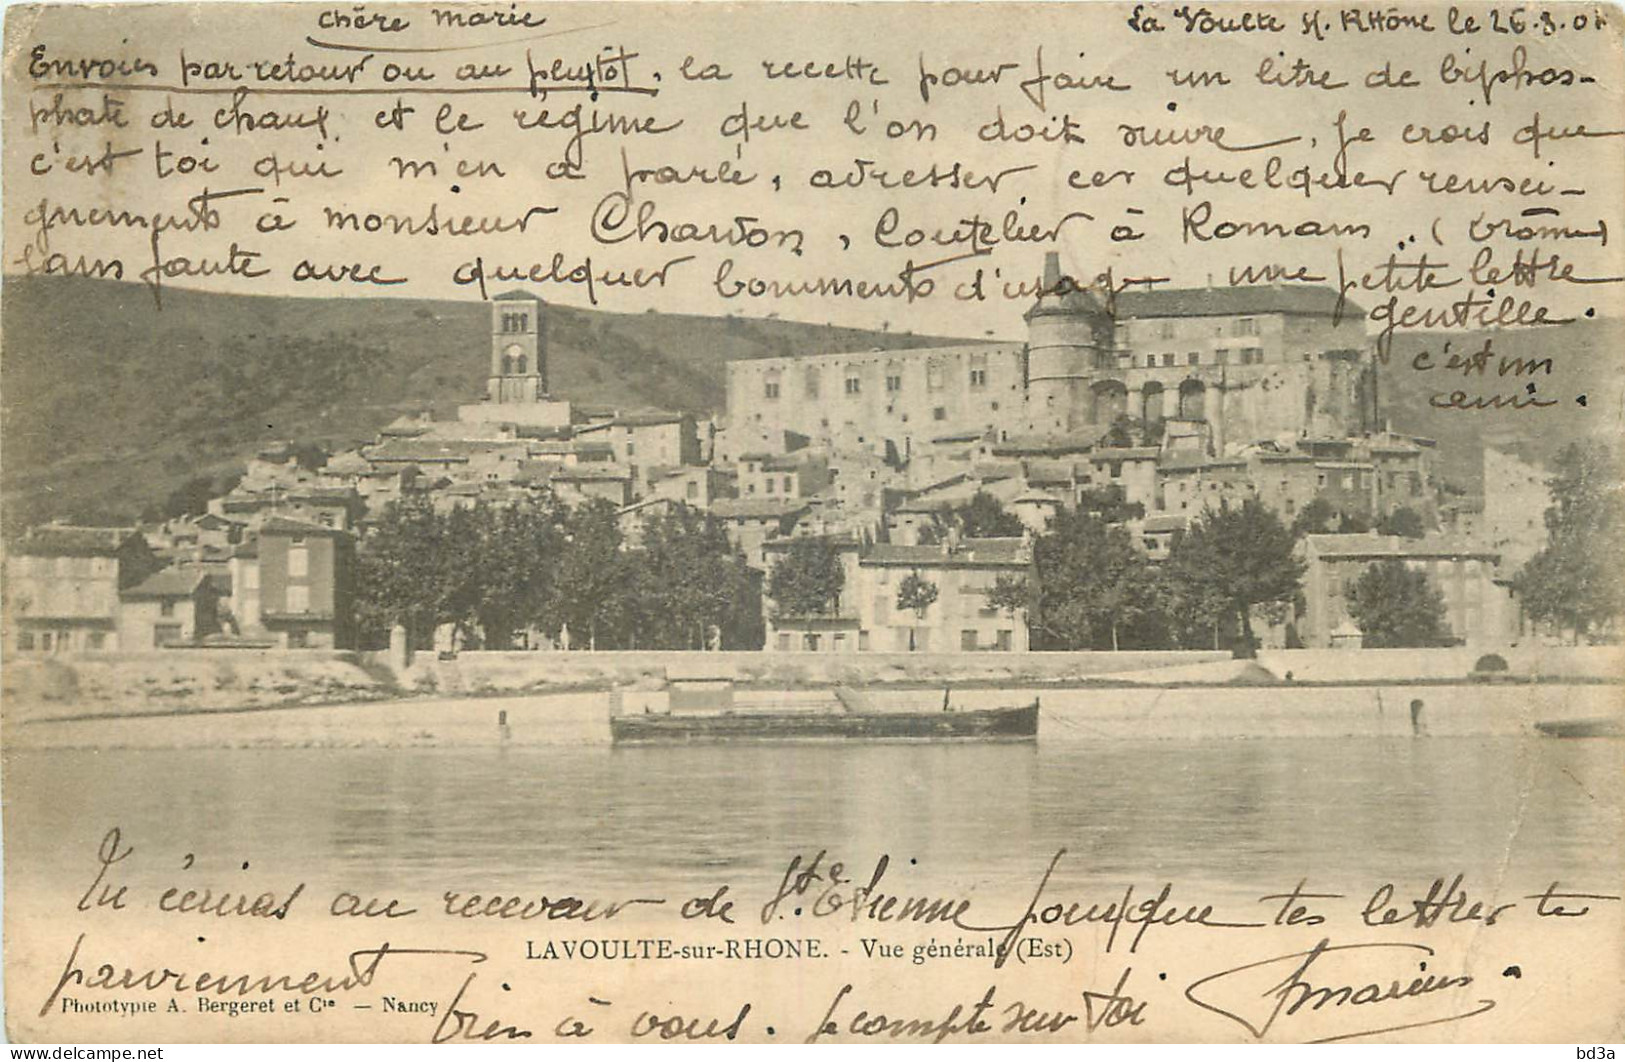 chère marie
La Voulte s/. Rhône le 26.8.01
Envoies par retour ou au plutôt, la recette pour faire un litre de biphos-
phate de chaux et le régime que l'on doit suivre, je crois que
c'est toi qui m'en a parlé, adresser ces quelques rensei-
gnements à monsieur Chardon, Coutelier à Romans.. (Drôme)
sans faute avec quelques boniments d'usage, une petite lettre
gentille.
c'est un
ami.
Tu écriras au receveur de St. Etienne pour que tes lettres te
parviennent
LAVOULTE-sur-RHONE. - Vue générale (Est)
Phototypie A. Bergeret et Cie — Nancy
bien à vous. Je compte sur toi marius.
bd3a
www.delcampe.net